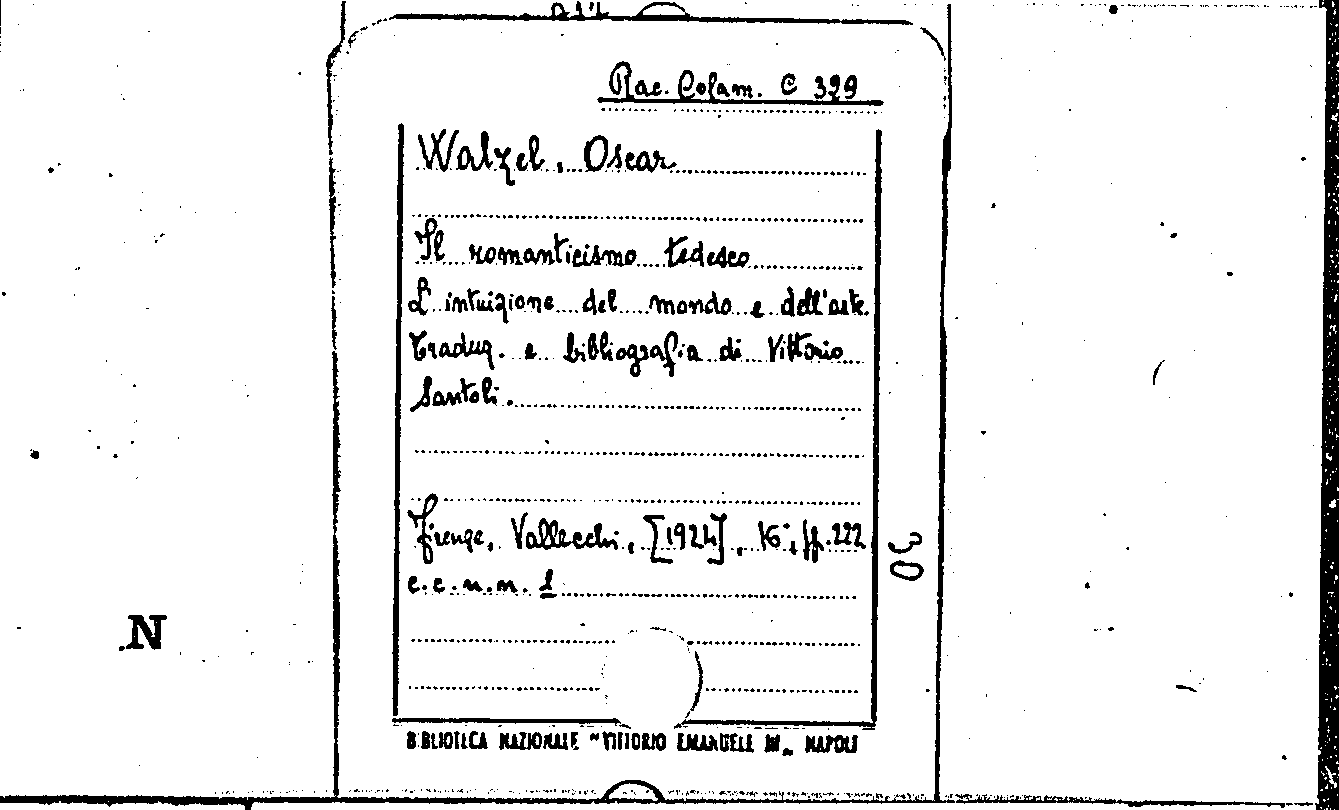 Rac. Colam. C 329
Walzel, Oscar
Il romanticismo tedesco
L'intuizione del mondo e dell'arte.
Traduz. e bibliografia di Vittorio
Santoli.
Firenze, Vallecchi, [1924], 16°, pp. 222
c.c.n.n. 1
30
N
BIBLIOTECA NAZIONALE "VITTORIO EMANUELE III" NAPOLI